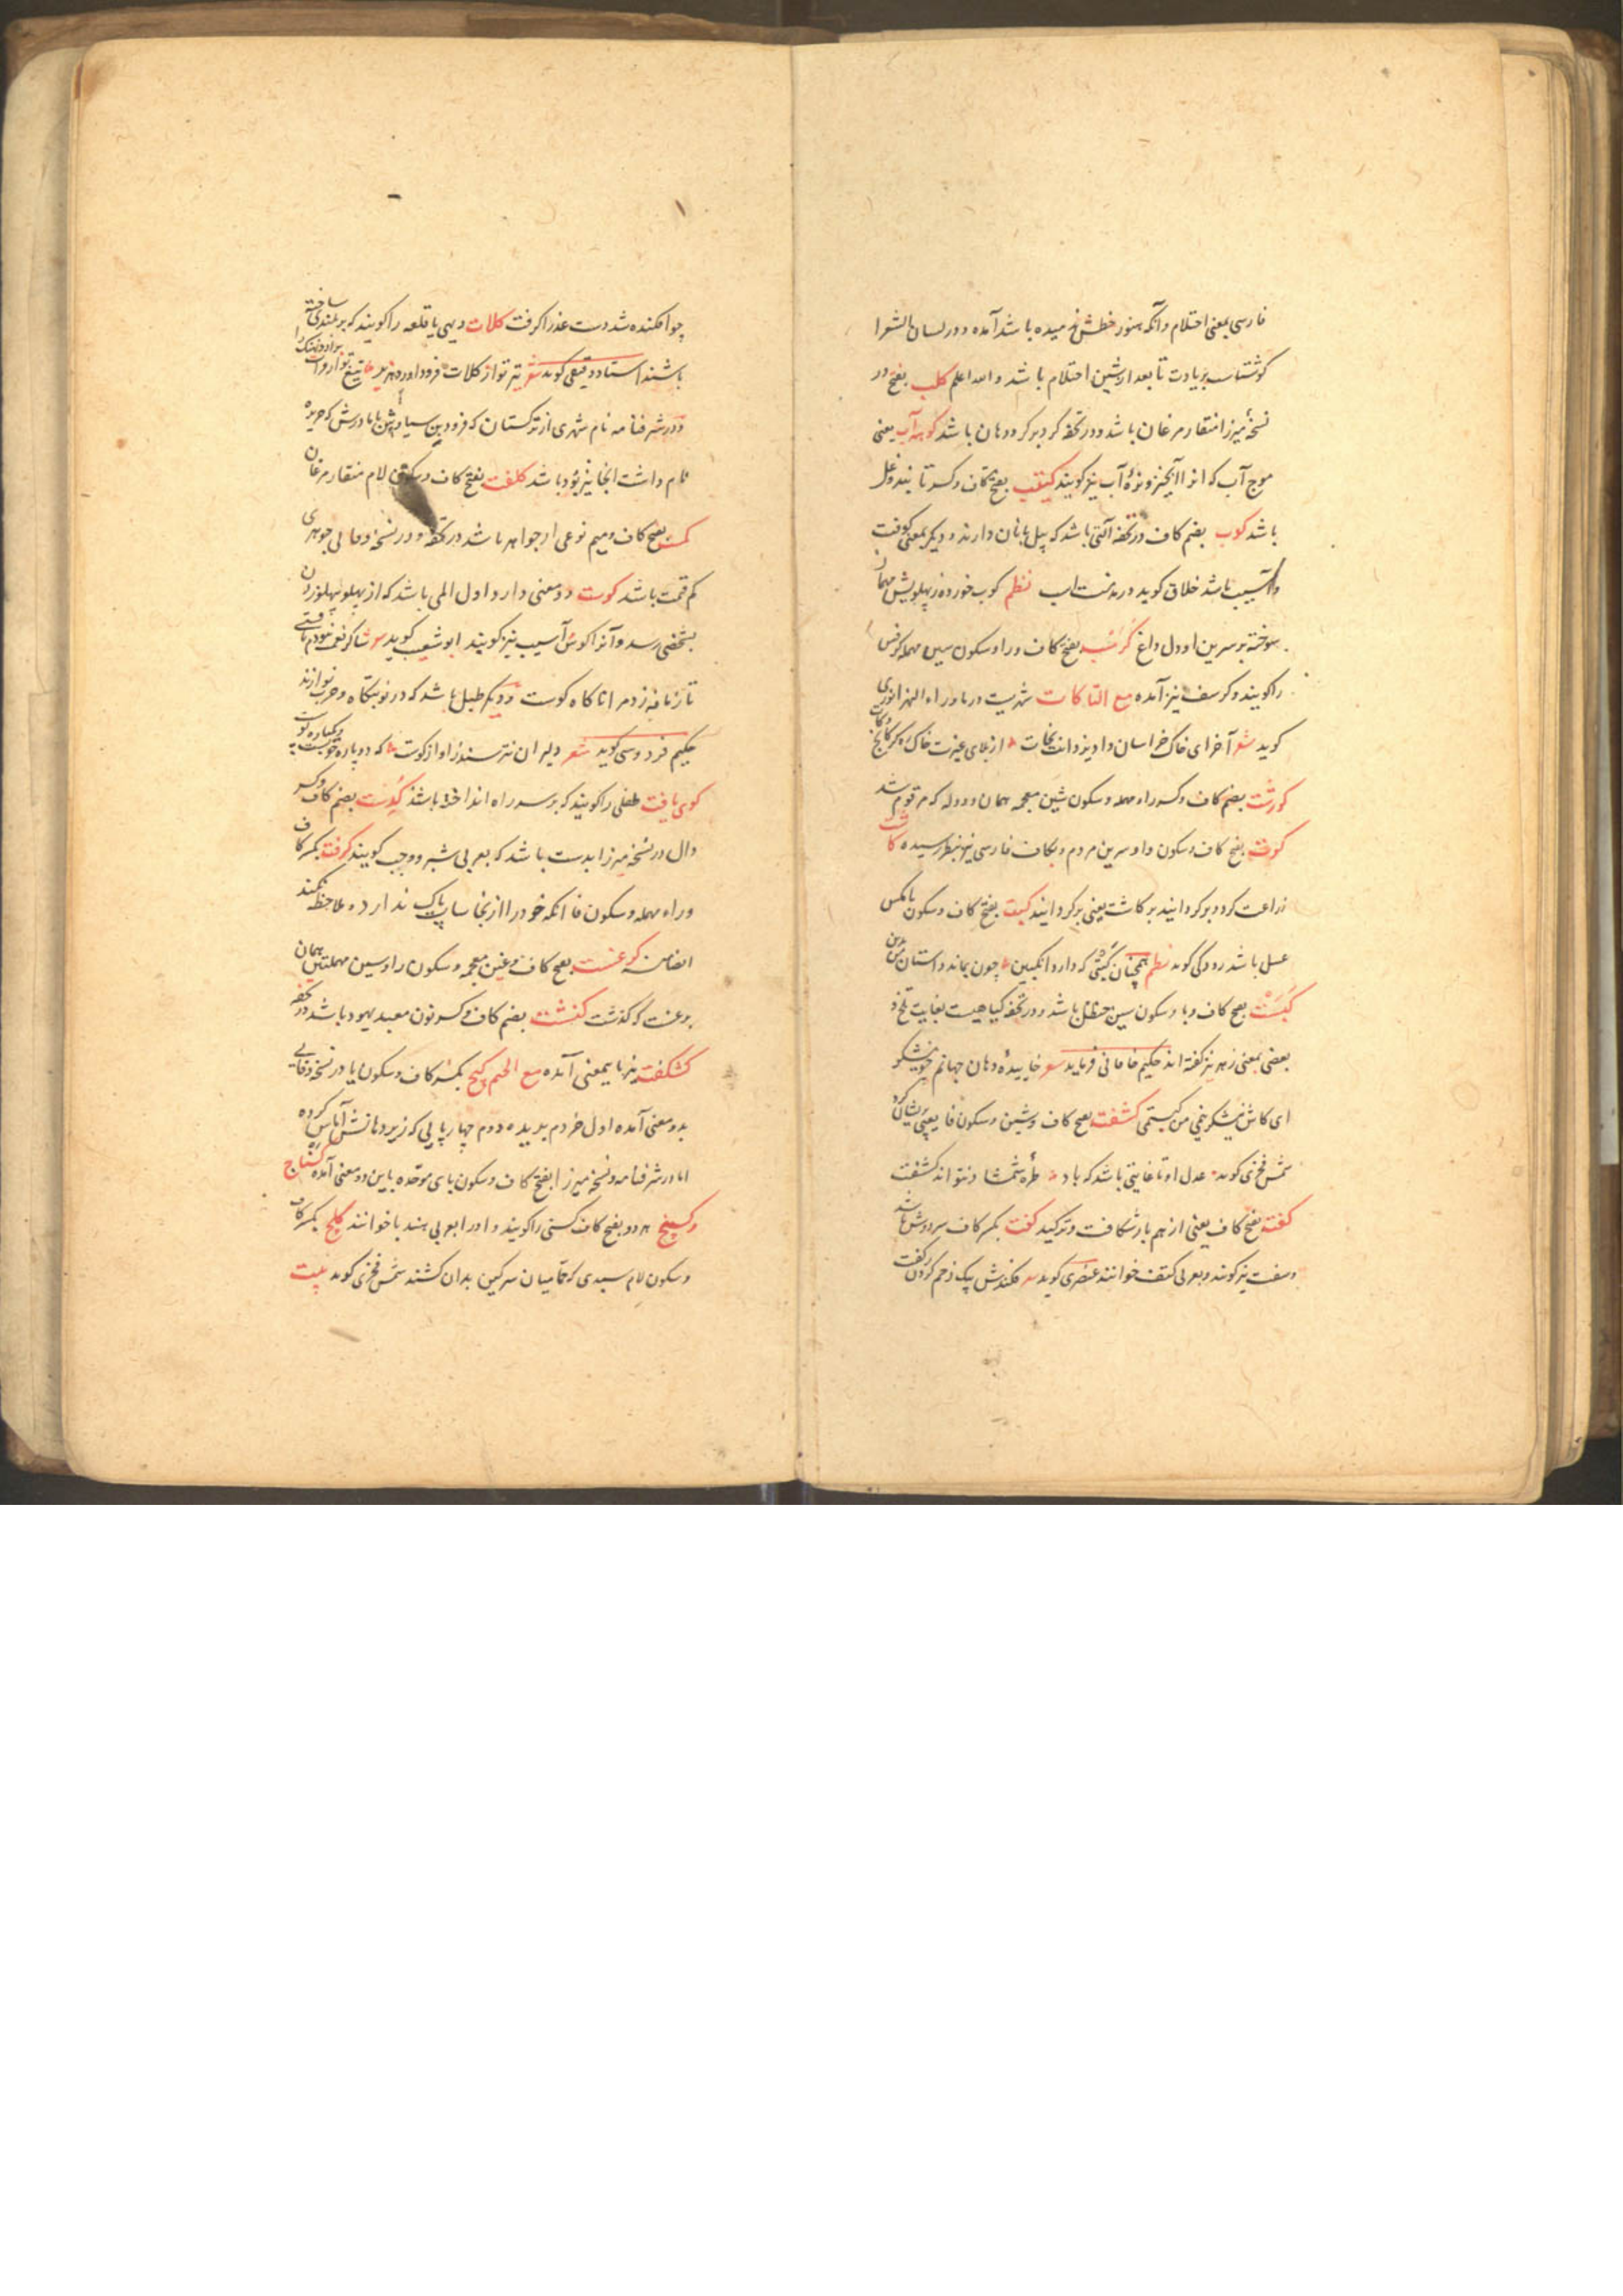 فارسی بمعنی احتلام وآنکه هنوز خطش ندمیده باشد آمده و در لسان الشعرا
کوشتاسب بزیادت تا بعد از شین احتلام باشد والله اعلم کلب بفتح در
نسخهٔ میرزا منقار مرغان باشد و در تحفه کرد بر کرد دهان باشد کوهه آب یعنی
موج آب که انرا آبخیز و نرهٔ آب نیز کویند کینب بفتح کاف و کسر تا بند و غل
باشد کوب بضم کاف در تحفه آلتی باشد که پیل بانان دارند و دیکر بمعنی کوفت
و آسیب باشد خلاق کوید در مذمت اسب نظم کوب خورده ز پهلویش مهمان
سوخته بر سرین او دل داغ کرسب بفتح کاف و را و سکون سین مهمله کرفس
را کویند و کرسف نیز آمده مع التا کات شهریست در ماوراء النهر انوری
کوید شعر آخر ای خاک خراسان داد یزدانت نجات از بلای غیرت خاک
کورشت بضم کاف و کسر راء مهمله و سکون شین معجمه همان ووله که مرقوم شد
کوت بفتح کاف و سکون واو سرین مردم و بکاف فارسی نیز بنظر رسیده کاشت
زراعت کرد و برکردانید برکاشت یعنی برکردانید کبت بفتح کاف و سکون با مکس
عسل باشد رودکی کوید نظم همچنان کبتی که دارد انکبین چون بماند داستان من برین
کَبَسْت بفتح کاف و با و سکون سین حنظل باشد و در تحفه کیاهیست بغایت تلخ و
بعضی بمعنی زهر نیز کفته اند حکیم خاقانی فرماید شعر خاییدهٔ دهان جهانم چو نیشکر
ای کاش نیشکر نیمی من کبستمی کشفت بفتح کاف و شین و سکون فا یعنی پریشان کرد
شمس فخری کوید عدل او تا غایتی باشد که باد طرهٔ شمشاد نتواند کشفت
کفت بفتح کاف یعنی از هم باز شکافت و ترکید کفت بکسر کاف سر دوش باشد
و سفت نیز کویند و بعربی کتف خوانند عنصری کوید فکندش بیک زخم کردن ز کفت
چو افکنده شد دست عذرا کرفت کلات دیهی یا قلعه را کویند که بر بلندی ساخته
باشند استاد دقیقی کوید شعر تیر تو از کلات فرود اورد هزبر تیغ تو از فرات برآرد نهنک را
و در شرفنامه نام شهری از ترکستان که فرود بن سیاوش با مادرش که جریره
نام داشت آنجا نیز بوده باشد کلفت بفتح کاف و سکون لام منقار مرغان
کمست بفتح کاف و میم نوعی از جواهر باشد در تحفه و در نسخهٔ وفایی جوهری
کم قیمت باشد کوست دو معنی دارد اول المی باشد که از پهلو بپهلو زدن
بشخصی رسد و آنرا کوس و آسیب نیز کویند ابو شعیب کوید شاکر نعمت نبودم یا فتی
تا زمانه زد مرا ناکاه کوست و دیکر طبل باشد که در نوبتکاه و حرب نوازند
حکیم فردوسی کوید شعر دلیران نترسند ز اواز کوست که دو پاره چوبست و یکپاره پوست
کوی یافت طفلی را کویند که بر سر راه انداخته باشند کدست بضم کاف و کسر
دال در نسخهٔ میرزا بدست باشد که بعربی شبر و وجب کویند کرفت بکسر کاف
و راء مهمله و سکون فا آنکه خود را از نجاسات پاک ندارد و ملاحظه نکند
ایضا منه کرغست بفتح کاف و غین معجمه و سکون را و سین مهملتین همان
برغست که کذشت کنشت بضم کاف و کسر نون معبد یهود باشد در تحفه
کشکفت نیز باینمعنی آمده مع الجیم کبج بکسر کاف و سکون با در نسخهٔ وفایی
بدو معنی آمده اول خر دم بریده دوم چهارپایی که زیر دهانش آماس کرده
اما در شرفنامه و نسخهٔ میرزا بفتح کاف و سکون بای موحده باین دو معنی آمده کشناج
و کسنج هر دو بفتح کاف کسنی را کویند و او را بعربی هندبا خوانند کلج بکسر کاف
و سکون لام سبدی که حمامیان سرکین بدان کشند شمس فخری کوید بیت